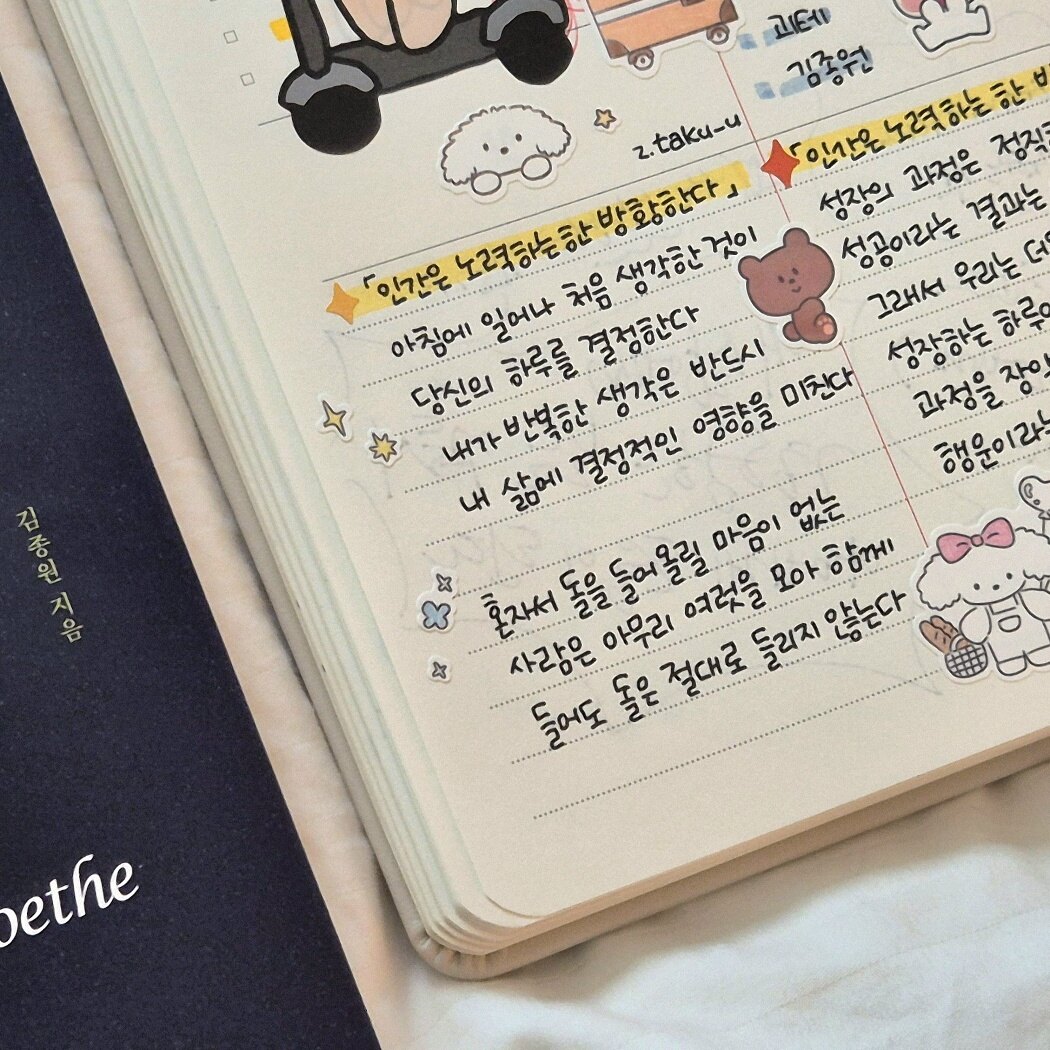 괴테
김종원
z.taku-u
「인간은 노력하는한 방황한다」
아침에 일어나 처음 생각한 것이
당신의 하루를 결정한다
내가 반복한 생각은 반드시
내 삶에 결정적인 영향을 미친다
혼자서 돌을 들어올릴 마음이 없는
사람은 아무리 여럿을 모아 함께
들어도 돌은 절대로 들리지 않는다
「인간은 노력하는한
성장의 과정은 정직
성공이라는 결과는
그래서 우리는
성장하는 하루
과정을
행운이라는
김종원 지음
oethe